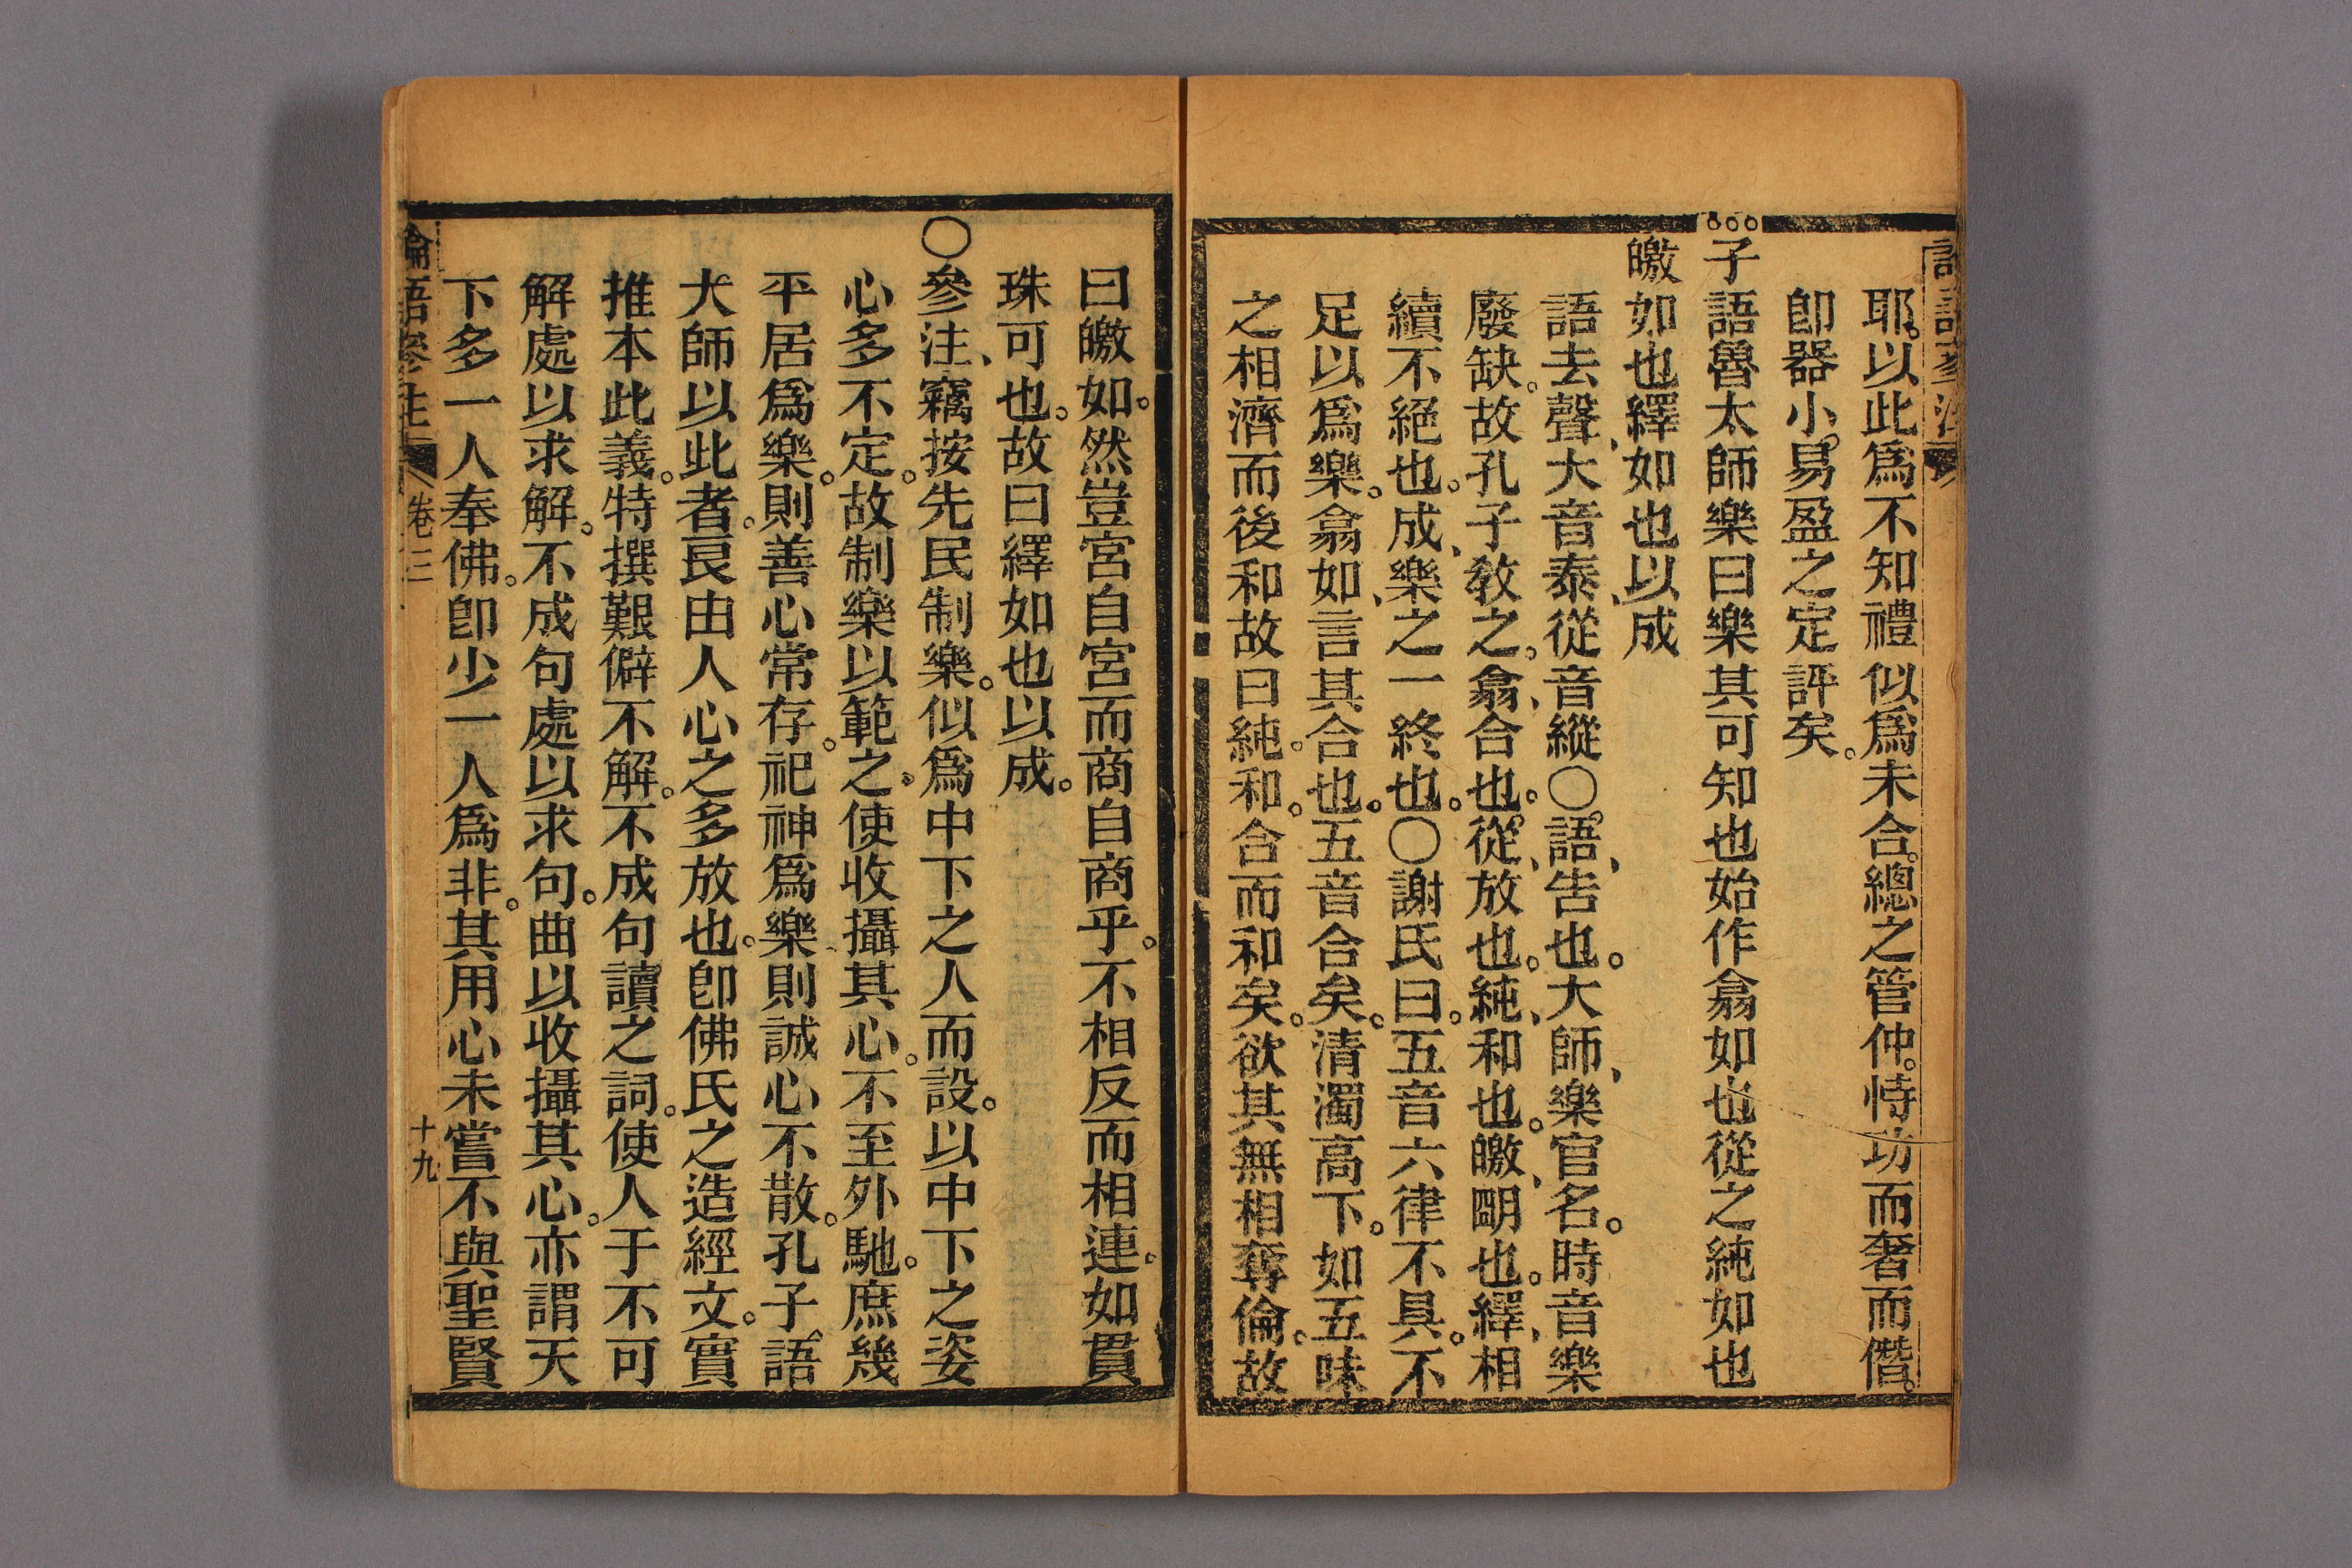 耶。以此爲不知禮似爲未合。總之管仲。恃功而奢而僭。
卽器小。易盈之定評矣。
子語魯太師樂曰樂其可知也始作翕如也從之純如也
皦如也繹如也以成
語去聲、大音泰、從音縱〇。語、告也。大師、樂官名。時音樂
廢缺。故孔子敎之。翕、合也。從、放也。純、和也。皦、明也。繹、相
續不絕也。成、樂之一終也。〇謝氏曰。五音六律不具。不
足以爲樂。翕如、言其合也。五音合矣。清濁高下。如五味
之相濟而後和故曰純。和。合而和矣。欲其無相奪倫。故
曰皦如。然豈宮自宮而商自商乎。不相反而相連。如貫
珠可也。故曰繹如也以成。
〇參注、竊按先民制樂。似爲中下之人而設。以中下之姿
心多不定。故制樂以範之。使收攝其心。不至外馳。庶幾
平居爲樂。則善心常存。祀神爲樂則誠心不散。孔子語
大師以此者。良由人心之多放也。卽佛氏之造經文。實
推本此義。特撰艱僻不解。不成句讀之詞。使人于不可
解處以求解。不成句處以求句。曲以收攝其心。亦謂天
下多一人奉佛。卽少一人爲非。其用心未嘗不與聖賢
論語參注 卷三 十九